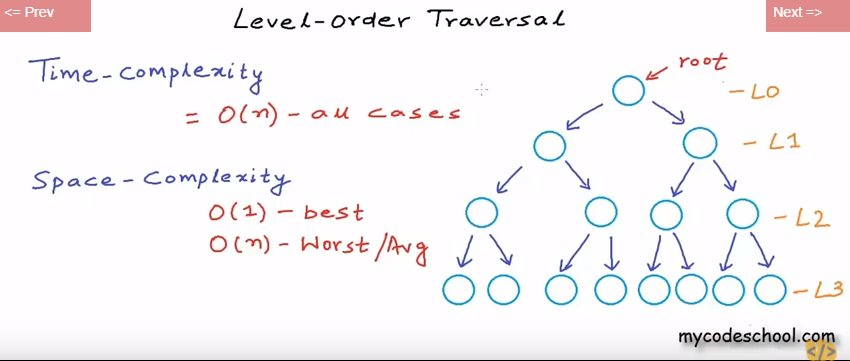 <= Prev
Level-order Traversal
Next =>
Time-complexity
= O(n) - all cases
Space-Complexity
O(1) - best
O(n) - Worst/Avg
root
- L0
- L1
- L2
- L3
mycodeschool.com
</>